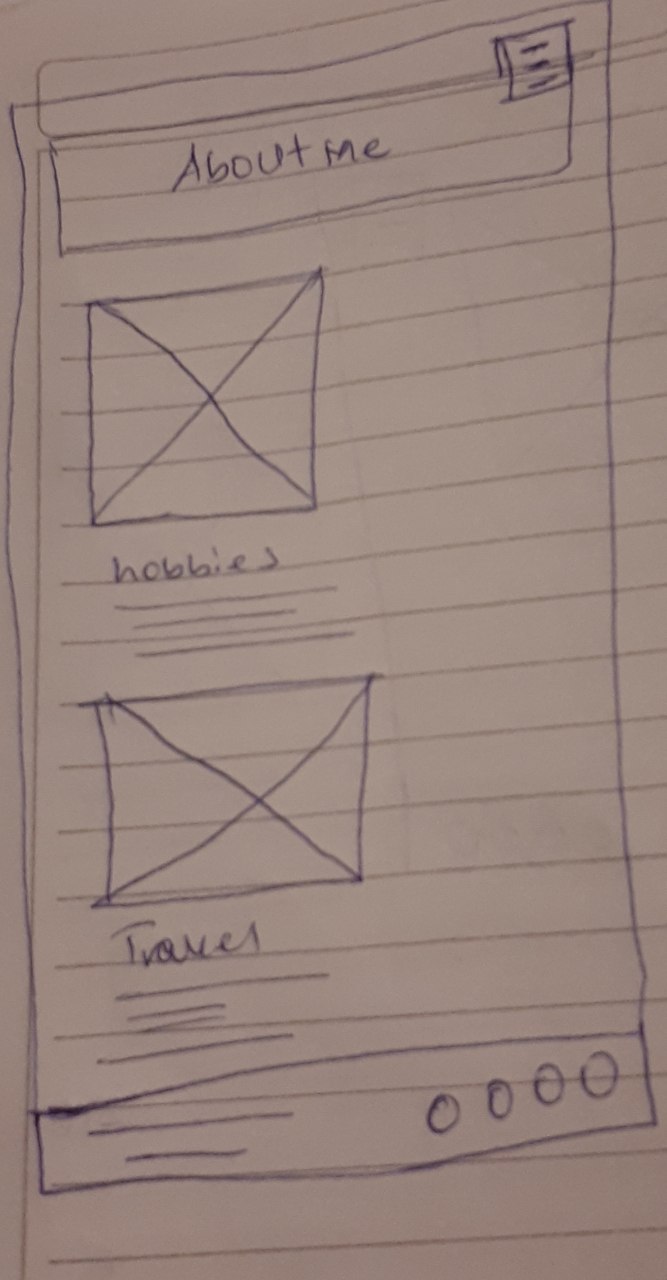 About me
hobbies
Travel